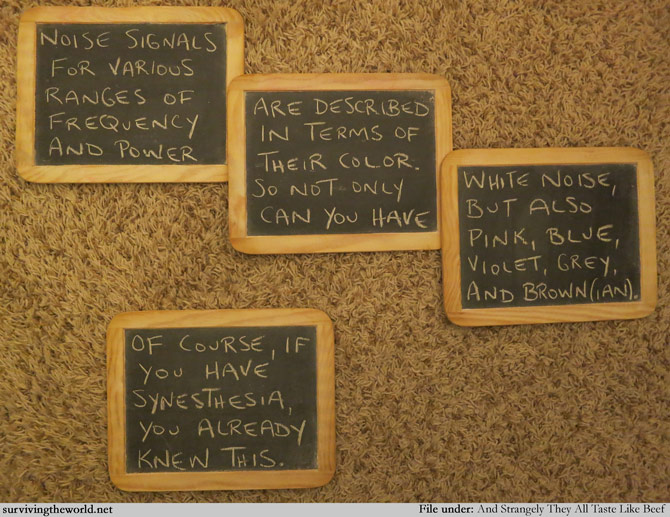 NOISE SIGNALS
FOR VARIOUS
RANGES OF
FREQUENCY
AND POWER
ARE DESCRIBED
IN TERMS OF
THEIR COLOR.
SO NOT ONLY
CAN YOU HAVE
WHITE NOISE,
BUT ALSO
PINK, BLUE,
VIOLET, GREY,
AND BROWN(IAN).
OF COURSE, IF
YOU HAVE
SYNESTHESIA,
YOU ALREADY
KNEW THIS.
survivingtheworld.net
File under: And Strangely They All Taste Like Beef